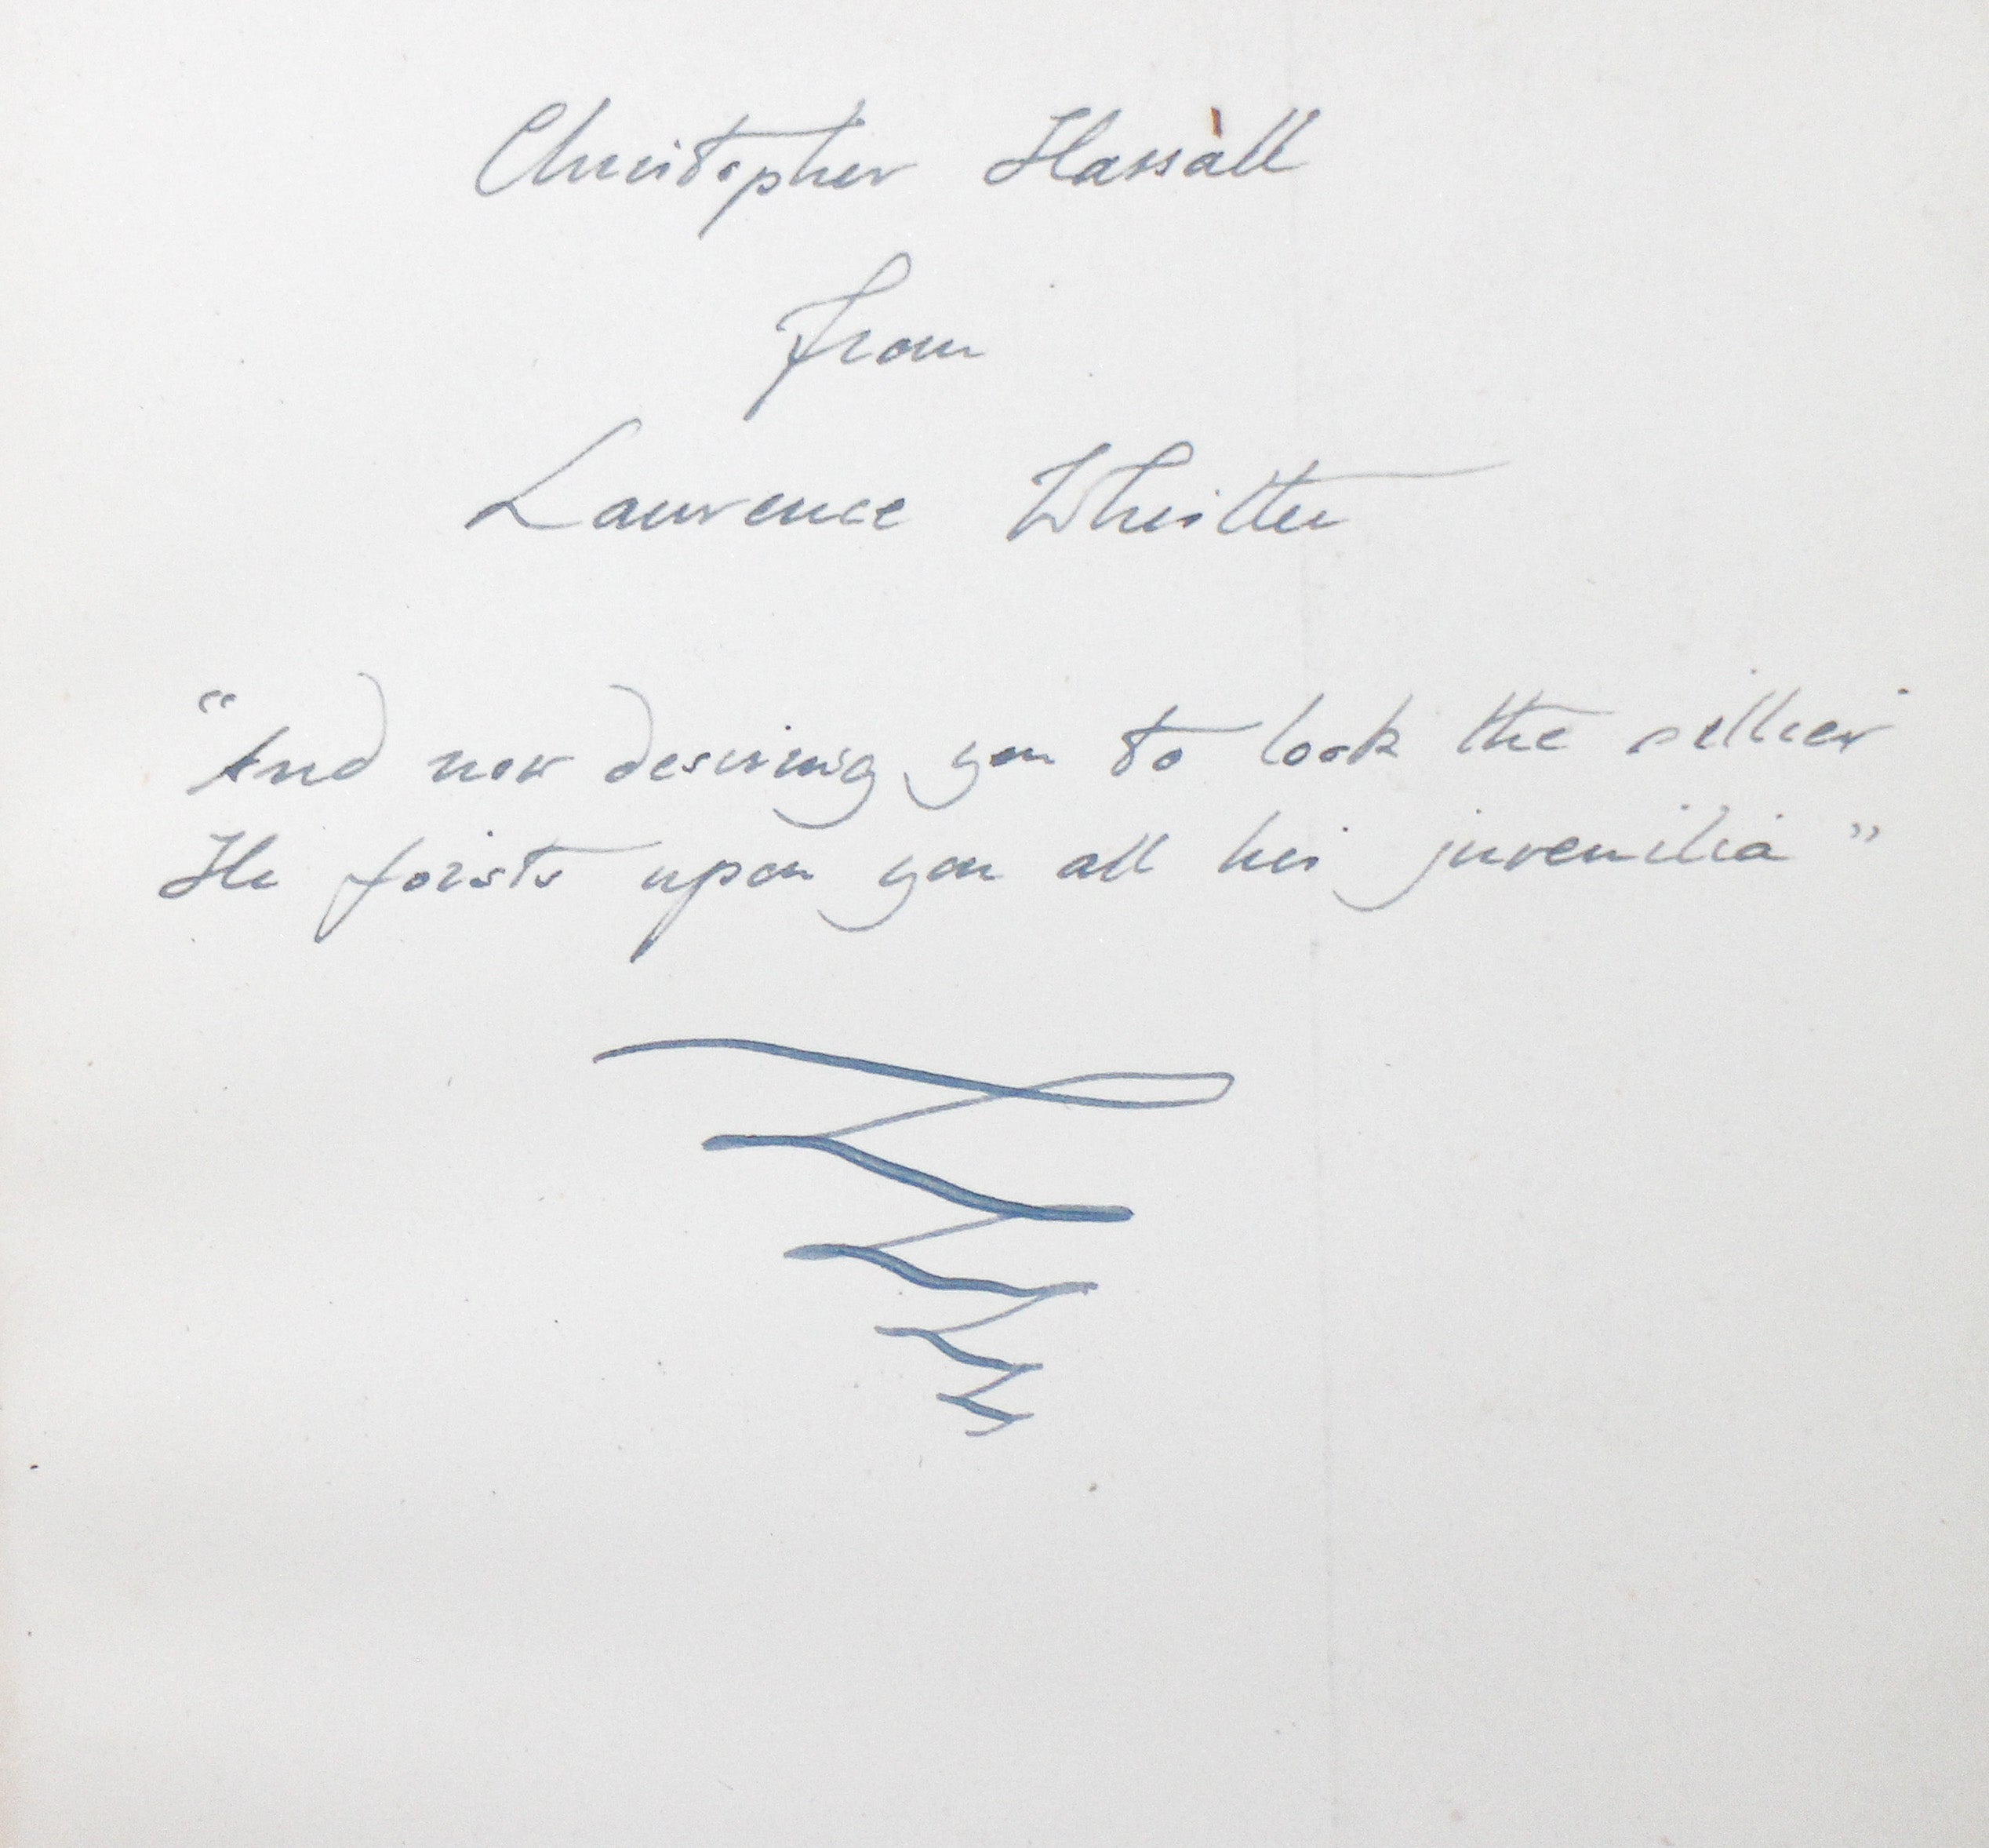 Christopher Hassall
from
Laurence Whistler
"And now desiring you to look the sillier
He foists upon you all his juvenilia"